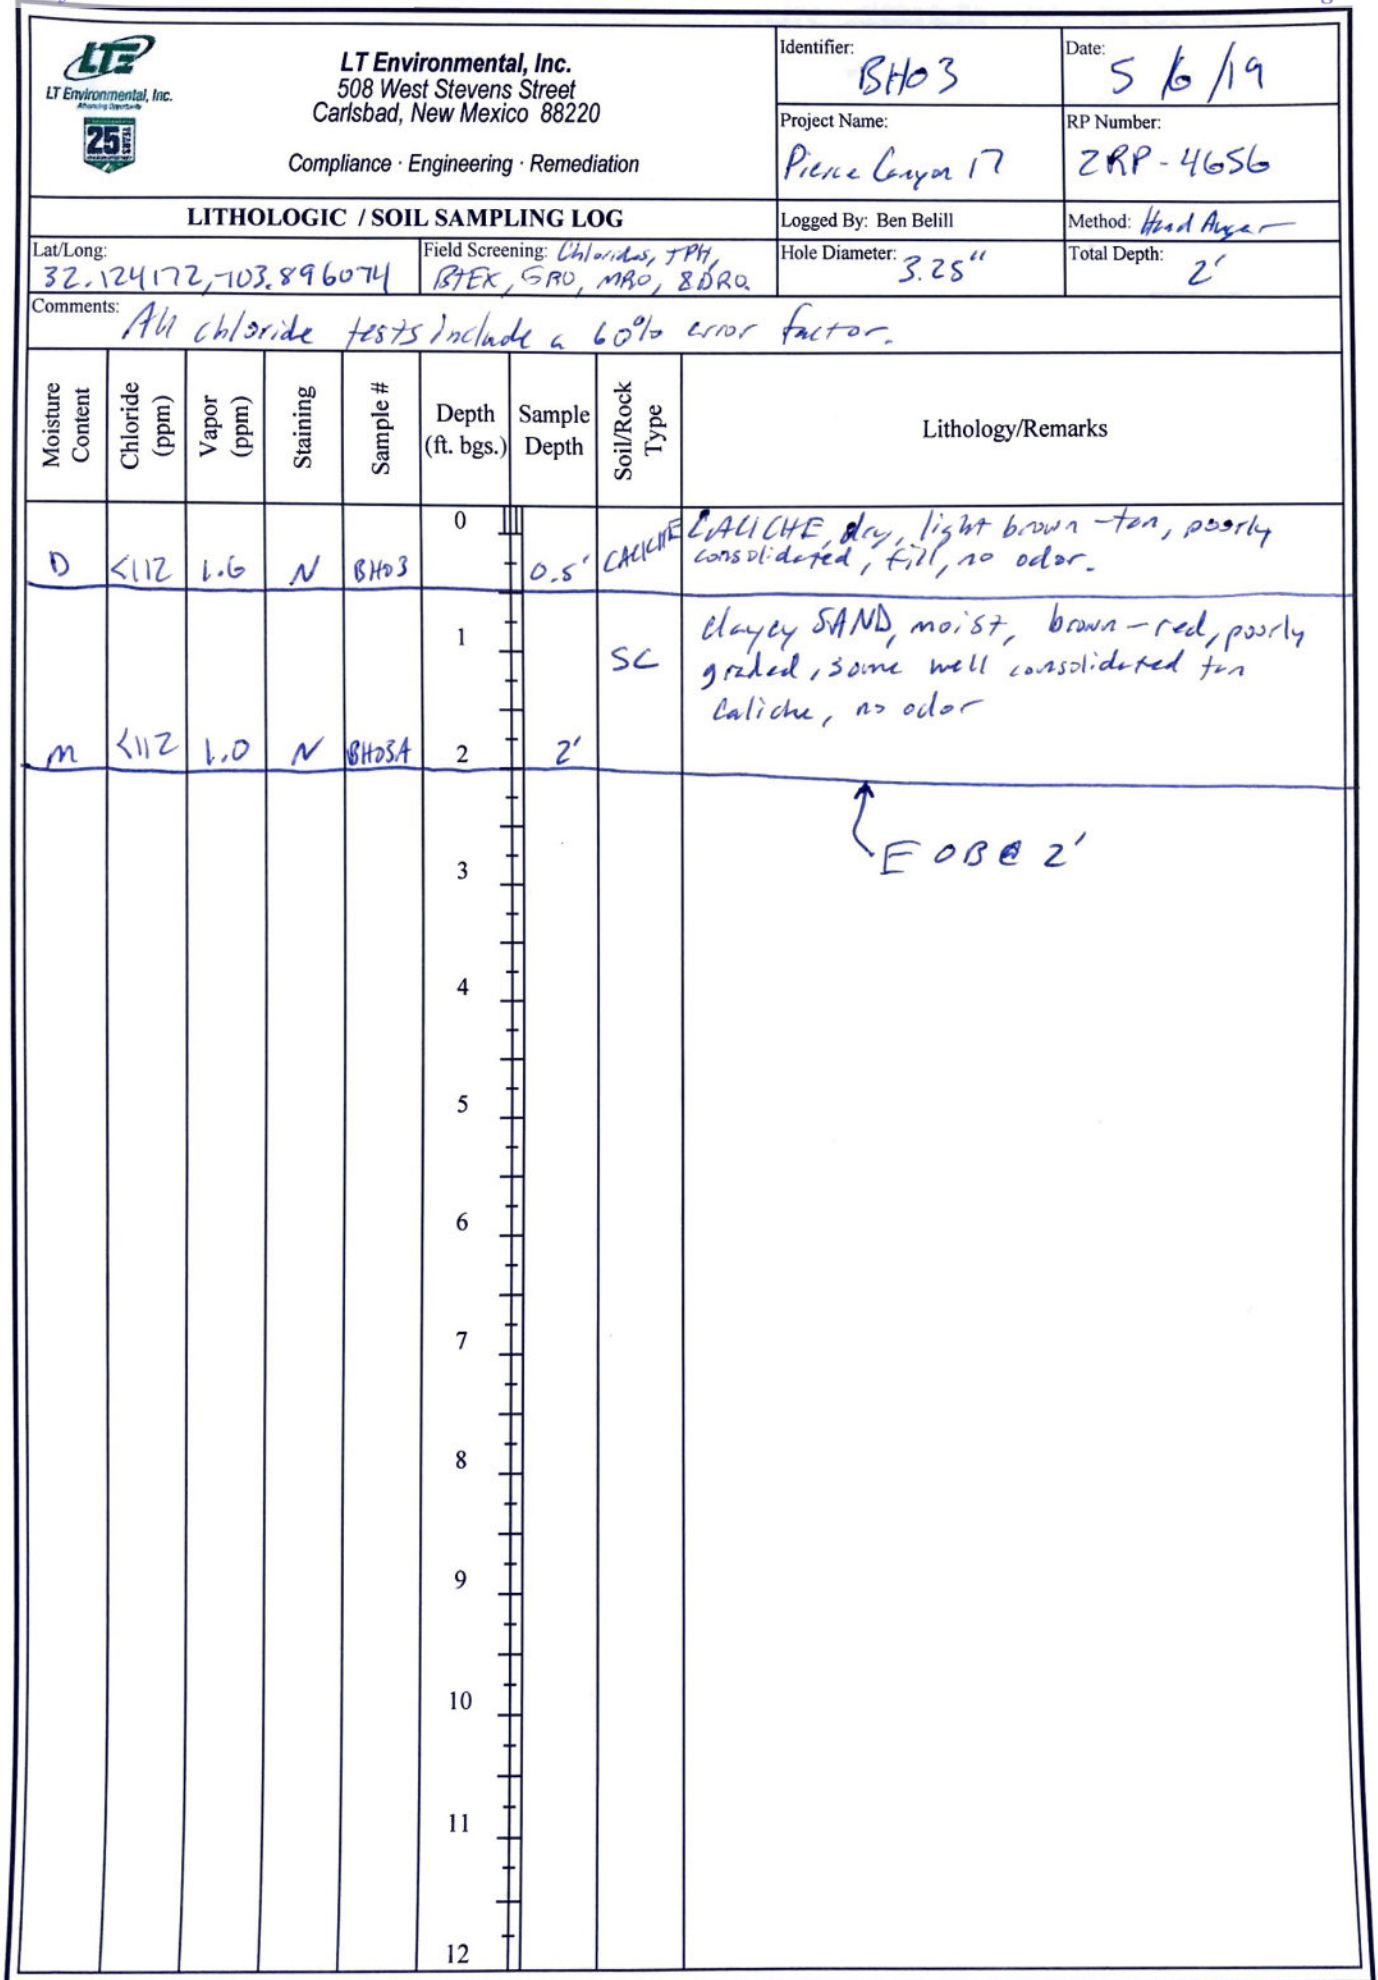 LTE
LT Environmental, Inc.
Advancing Opportunity
25 YEARS
LT Environmental, Inc.
508 West Stevens Street
Carlsbad, New Mexico 88220
Compliance · Engineering · Remediation
Identifier: BH03
Date: 5/6/19
Project Name: Pierce Canyon 17
RP Number: 2RP-4656
LITHOLOGIC / SOIL SAMPLING LOG
Logged By: Ben Belill
Method: Hand Auger
Lat/Long: 32.124172,-103.896074
Field Screening: Chlorides, TPH,
BTEX, GRO, MRO, & DRO.
Hole Diameter: 3.25"
Total Depth: 2'
Comments: All chloride tests include a 60% error factor.
Moisture Content
Chloride (ppm)
Vapor (ppm)
Staining
Sample #
Depth (ft. bgs.)
Sample Depth
Soil/Rock Type
Lithology/Remarks
0
D <112 1.6 N BH03 0.5' CALICHE CALICHE, dry, light brown-tan, poorly
consolidated, fill, no odor.
1 SC clayey SAND, moist, brown-red, poorly
graded, some well consolidated tan
caliche, no odor
m <112 1.0 N BH03A 2 2'
EOB@2'
3
4
5
6
7
8
9
10
11
12